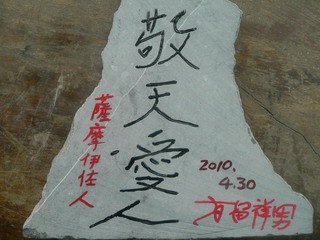 敬天愛人
薩摩伊佐人
2010.
4.30
有留祥男